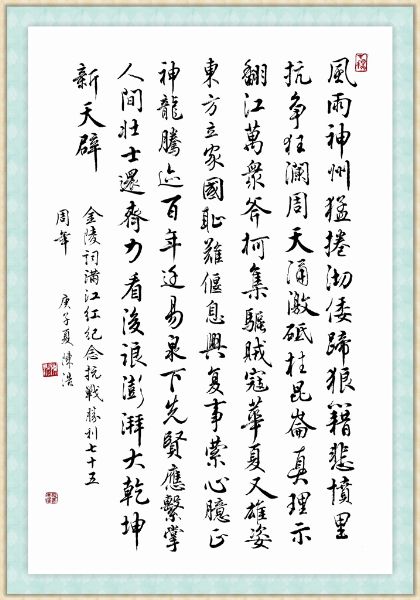 風雨神州猛捲沏倭蹄狼籍悲憤里
抗争狂瀾周天涌激砥柱昆崙真理示
翻江萬衆斧柯集驅賊寇華夏又雄姿
東方立家國恥難偃息興复事縈心臆正
神龍騰迹百年迁易泉下先賢應繫掌
人間壯士還齊力看後浪澎湃大乾坤
新天辟
金陵詞滿江红纪念抗戰勝利七十五
周年 庚子夏陳浩